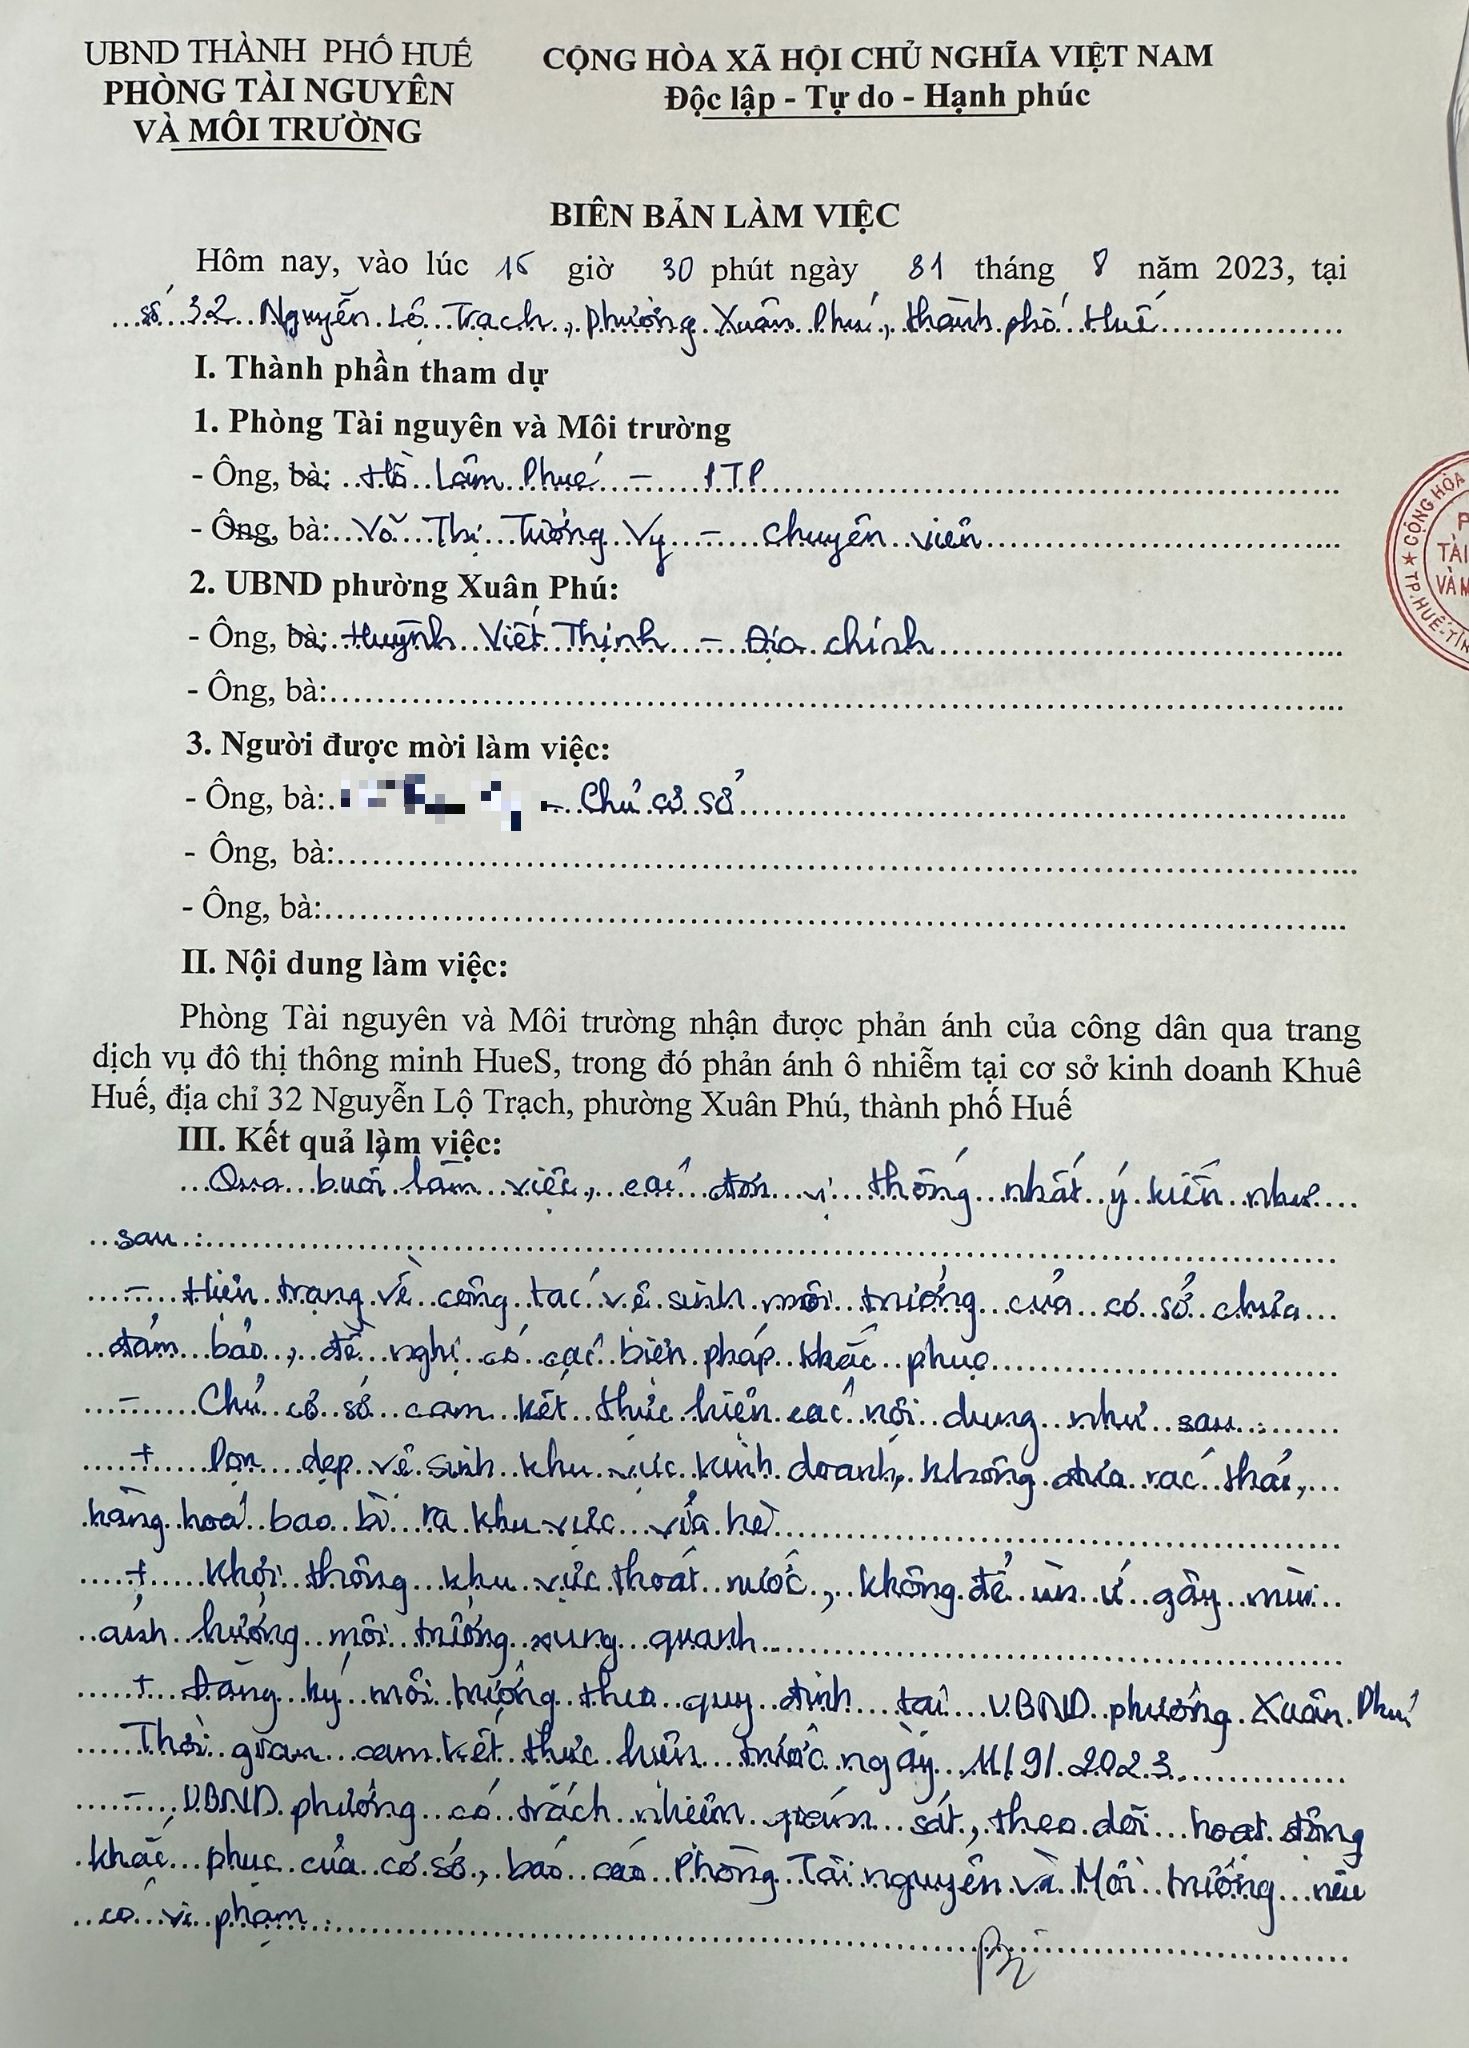 UBND THÀNH PHỐ HUẾ
PHÒNG TÀI NGUYÊN
VÀ MÔI TRƯỜNG
CỘNG HÒA XÃ HỘI CHỦ NGHĨA VIỆT NAM
Độc lập - Tự do - Hạnh phúc
BIÊN BẢN LÀM VIỆC
Hôm nay, vào lúc 15 giờ 30 phút ngày 31 tháng 8 năm 2023, tại
số 32 Nguyễn Lộ Trạch, phường Xuân Phú, thành phố Huế
I. Thành phần tham dự
1. Phòng Tài nguyên và Môi trường
- Ông, bà: Hồ Lâm Phué - PTP
- Ông, bà: Võ Thị Tường Vy - chuyên viên
2. UBND phường Xuân Phú:
- Ông, bà: Huỳnh Viết Thịnh - Địa chính
- Ông, bà:
3. Người được mời làm việc:
- Ông, bà: - Chủ cơ sở
- Ông, bà:
- Ông, bà:
II. Nội dung làm việc:
Phòng Tài nguyên và Môi trường nhận được phản ánh của công dân qua trang
dịch vụ đô thị thông minh HueS, trong đó phản ánh ô nhiễm tại cơ sở kinh doanh Khuê
Huế, địa chỉ 32 Nguyễn Lộ Trạch, phường Xuân Phú, thành phố Huế
III. Kết quả làm việc:
Qua buổi làm việc, các đơn vị thống nhất ý kiến như
sau :
- Hiện trạng về công tác vệ sinh môi trường của cơ sở chưa
đảm bảo, đề nghị có các biện pháp khắc phục
- Chủ cơ sở cam kết thực hiện các nội dung như sau :
+ Dọn dẹp vệ sinh khu vực kinh doanh, không đưa rác thải,
hàng hoá bao bì ra khu vực vỉa hè
+ Khơi thông khu vực thoát nước, không để ùn ứ gây mùi
ảnh hưởng môi trường xung quanh
+ Đăng ký môi trường theo quy định tại UBND phường Xuân Phú
Thời gian cam kết thực hiện trước ngày 11/9/2023
- UBND phường có trách nhiệm giám sát, theo dõi hoạt động
khắc phục của cơ sở, báo cáo Phòng Tài nguyên và Môi trường nếu
có vi phạm.
CỘNG HÒA
TÀI
VÀ M
TP.HUẾ-TỈN